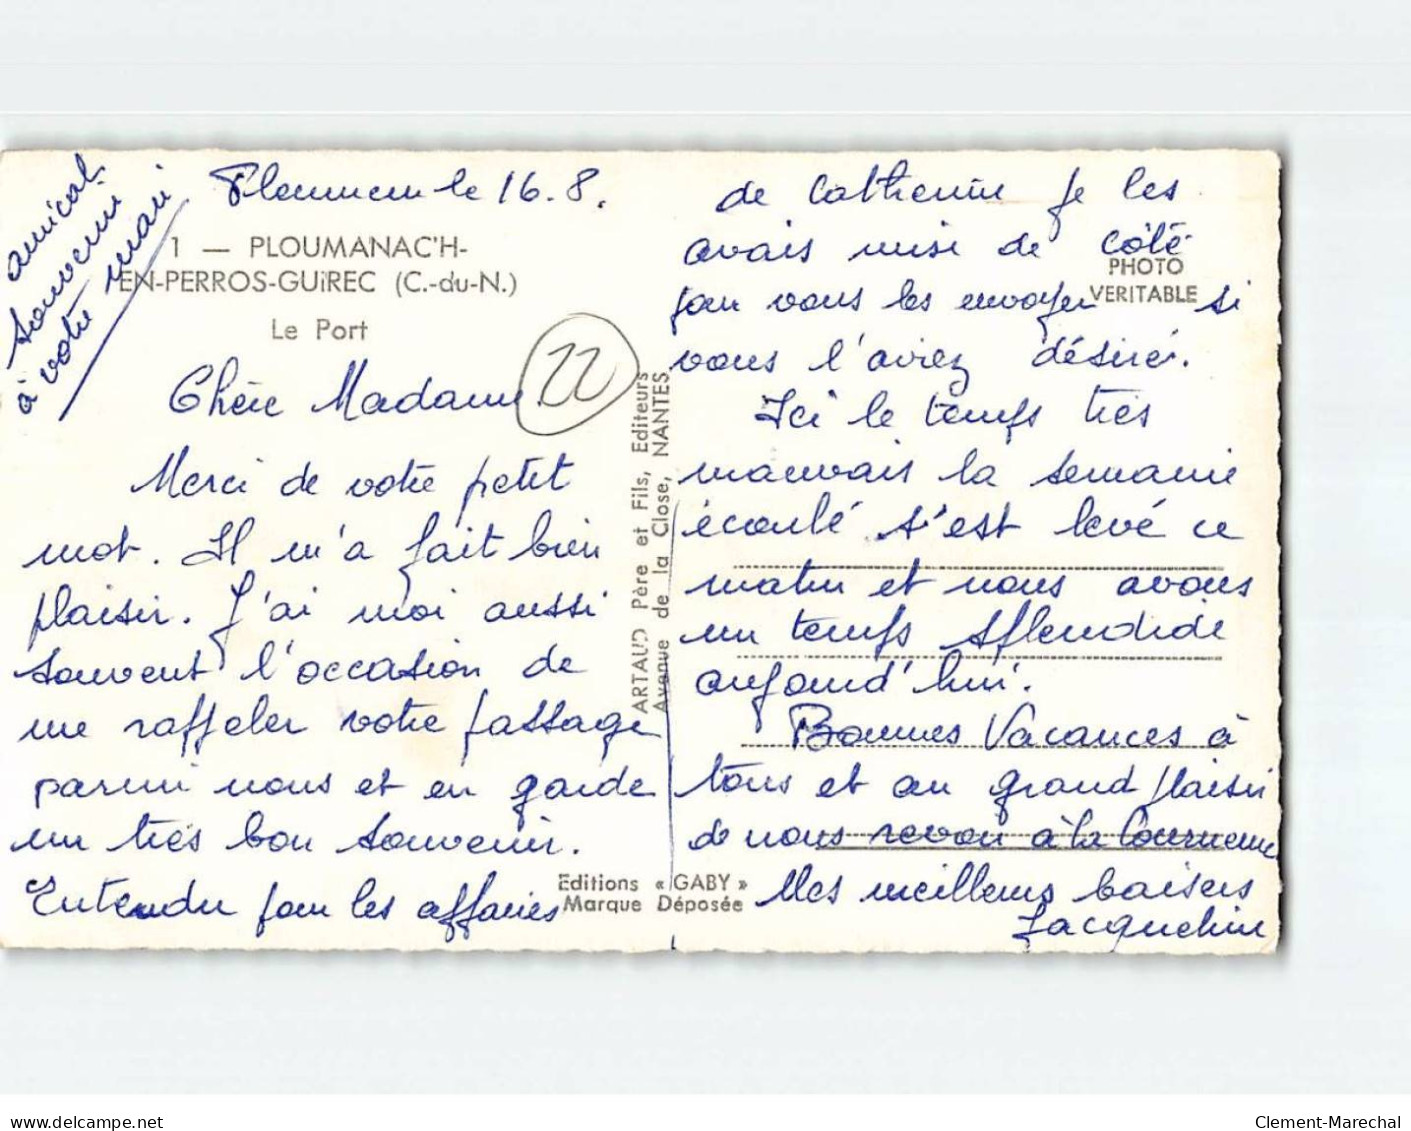 le 16.8.
1 — PLOUMANAC'H-
EN-PERROS-GUiREC (C.-du-N.)
Le Port
amical
souvenir
à votre mari
22
Chère Madame
Merci de votre petit
mot. Il m'a fait bien
plaisir. J'ai moi aussi
souvent l'occasion de
me rappeler votre passage
parmi nous et en garde
un très bon souvenir.
Entendu pour les affaires
ARTAUD Père et Fils, Editeurs
Avenue de la Close, NANTES
Editions « GABY »
Marque Déposée
PHOTO
VERITABLE
de Catherine je les
avais mise de côté
pour vous les envoyer si
vous l'aviez désiré.
Ici le temps très
mauvais la semaine
écoulé s'est levé ce
matin et nous avons
un temps splendide
aujourd'hui.
Bonnes Vacances à
tous et au grand plaisir
de nous revoir à la
Mes meilleurs baisers
Jacqueline
www.delcampe.net
Clement-Marechal